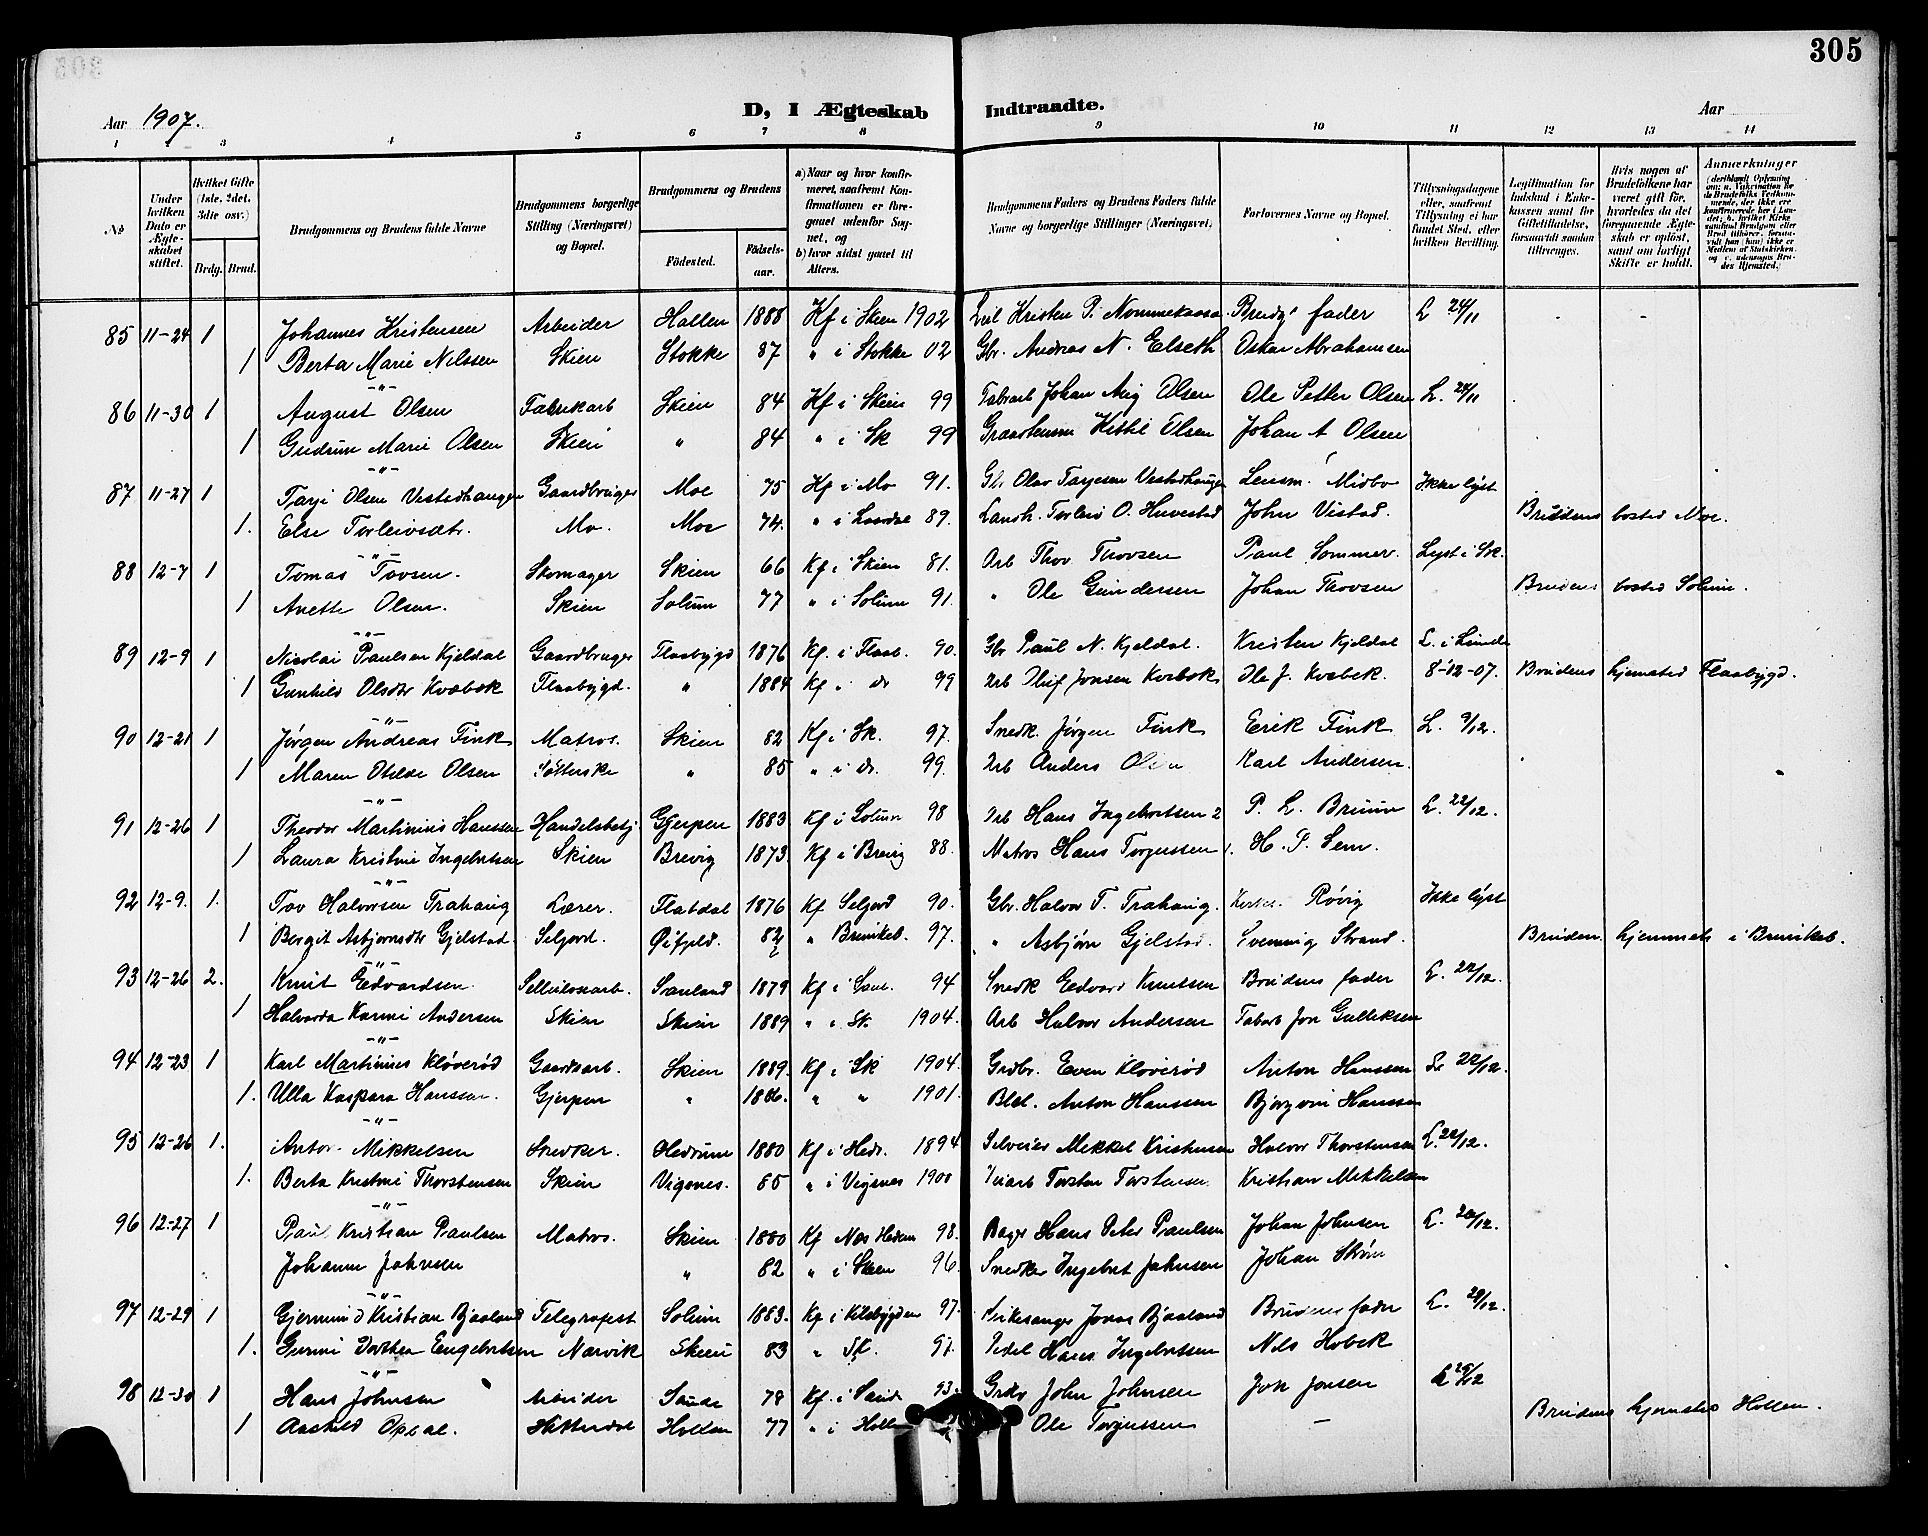 305
Aar 1907. D, I Ægteskab Indtraadte. Aar
1 2 3 4 5 6 7 8 9 10 11 12 13 14
No
Under hvilken Dato er Ægteskabet stiftet.
Hvilket Gifte (1ste, 2det, 3die osv.)
Brdg. Brud.
Brudgommens og Brudens fulde Navne
Brudgommens borgerlige Stilling (Næringsvei) og Bopæl.
Brudgommens og Brudens
Fødested. Fødselsaar.
a) Naar og hvor konfirmeret, saafremt Konfirmationen er foregaaet udenfor Sognet, og
b) hvor sidst gaaet til Alters.
Brudgommens Faders og Brudens Faders fulde Navne og borgerlige Stillinger (Næringsvei)
Forlovernes Navne og Bopæl.
Tillysningsdagene eller, saafremt Tillysning ei har fundet Sted, efter hvilken Bevilling.
Legitimation for Indskud i Enkekassen samt for Giftetilladelse, forsaavidt saadan tiltrænges.
Hvis nogen af Brudefolkene har været gift før, hvorledes da det foregaaende Ægteskab er opløst, samt om lovligt Skifte er holdt.
Anmærkninger
85 11-24 1 Johannes Kristensen Arbeider Hollen 1888 Kf i Skien 1902 Kristen P. Brudg. fader L 24/11
1 Berta Marie Nilssen Skien Stokke 87 " i Stokke 02 Gbr. Andreas N. Elseth Oskar Abrahamsen
86 11-30 1 August Olsen Fabrikarb Skien 84 Kf i Skien 99 Fabrarb Johan Aug Olsen Ole Petter Olsen L. 24/11
1 Gudrun Marie Olsen Skien " 84 " i Sk 99 Kittil Olsen Johan A Olsen
87 11-27 1 Tarje Olsen Vestedhaugen Gaardbruger Moe 75 Kf i Mo 91. Olav Tarjesen Vestedhaugen Lensm. Midbo Ikke lyst
1. Else Torleivsdtr. Mo. Moe 74. " i 89. Torleiv O. Huvestad John Vistad. Brudens bosted Moe.
88 12-7 1 Tomas Tovsen. Skomager Skien 66 Kf i Skien 81. Arb Thov Thovsen Paul Sommer. Lyst i Sk.
1 Anette Olsen. Skien Solum 77 " i Solum 91. " Ole Gundersen Johan Thovsen Brudens bosted Solum.
89 12-9 1 Nicolai Paulsen Kjeldal Gaardbruger Flaabygd 1876 Kf. i Flaab. 90. Gbr Paul N. Kjeldal. Kristen Kjeldal L. i Lunde
1 Gunhild Olsdtr Kvæbek Flaabygd. " 1884 Kf " do 99 Arb Oluf Jonsen Kvebek Ole J. Kvæbek. 8-12-07. Brudens hjemsted Flaabygd.
90 12-21 1 Jørgen Andreas Fink Matros. Skien 82 Kf i Sk. 97. Snedk. Jørgen Fink Erik Fink L. 9/12.
1 Maren Otilde Olsen " 85 " i do. 99. Arb Anders Olsen Karl Andersen.
91 12-26 1 Theodor Martinius Hanssen Handelsbetj. Gjerpen 1883 Kf i Solum 98 Arb Hans Ingebretsen 2 P. L. Bruun L. 22/12.
1 Laura Kristine Ingebretsen Skien Brevig 1873. Kf i Brevig 88. Matros Hans Torgussen 1. H. P. Sem.
92 12-9. 1. Tov Halvorsen Trahaug Lærer. Flatdal 1876 Kf Seljord 90. Gbr. Halvor T. Trahaug. Røvig Ikke lyst
1 Bergit Asbjørnsdtr Gjelstad. Seljord. Øifjeld. 82 " Brunkeb. 97. " Asbjørn Gjelstad. Svennug Strand. Bruden hjemmeh i Brunkeb.
93 12-26 2. Knut Edvardsen. Sellulosearb. Sauland 1879 Kf i Saul. 94 Snedk Edvard Knutsen Brudens fader L. 22/12.
1 Halvarda Karine Andersen Skien Skien 1889 " i Sk 1904. Arb Halvor Andersen Fabarb Jon Gulliksen
94 12-23 1 Karl Martinius Kløverød Gaardsarb. Skien 1889. Kf i Sk 1904. Grdbr. Even Kløverød Anton Hanssen L 22/12.
1. Ulla Kaspara Hanssen. Gjerpen " 1886. " " 1901. Anton Hanssen Bjørgvin Hanssen
95 12-26 1. Anton Mikkelsen Snedker. Hedrum 1880 Kf i Hedr. 1894 Selveier Mikkel Kristensen Halvor Thorstensen L. 22/12.
1. Berta Kristine Thorstensen Skien Vigsnes. 85 " i Vigsnes 1900 Torsten Torstensen Kristian Mikkelsen
96 12-27 1 Paul Kristian Paulsen Matros. Skien 1880 Kf Nes Hedem 98. Bager Hans Peter Paulsen Johan Johnsen L. 26/12.
Johanne Johnsen " 82 " i Skien 96. Snedker Ingebret Johnsen Johan Strøm
97 12-29 1 Gjermund Kristian Bjaaland Telegrafist Solum 1883. Kf i Kilebygden 97. Kirkesanger Jonas Bjaaland Brudens fader L. 29/12.
1. Gurine Dorthea Engebretsen Narvik Skien 83 " Sk. 97. Pedel Hans Ingebretsen Nils Hobek
98 12-30 1 Hans Johnsen Arbeider Saude 78 Kf. i Saude 93. Grdbr John Johnsen Jon Jonsen L 29/12
1 Aashild Opdal. Hitterdal Hollen 77 " i Hollen Ole Torgussen — Brudens hjemsted Hollen.